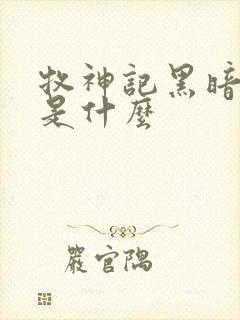 牧神記黑暗
是什麼
嚴官隅